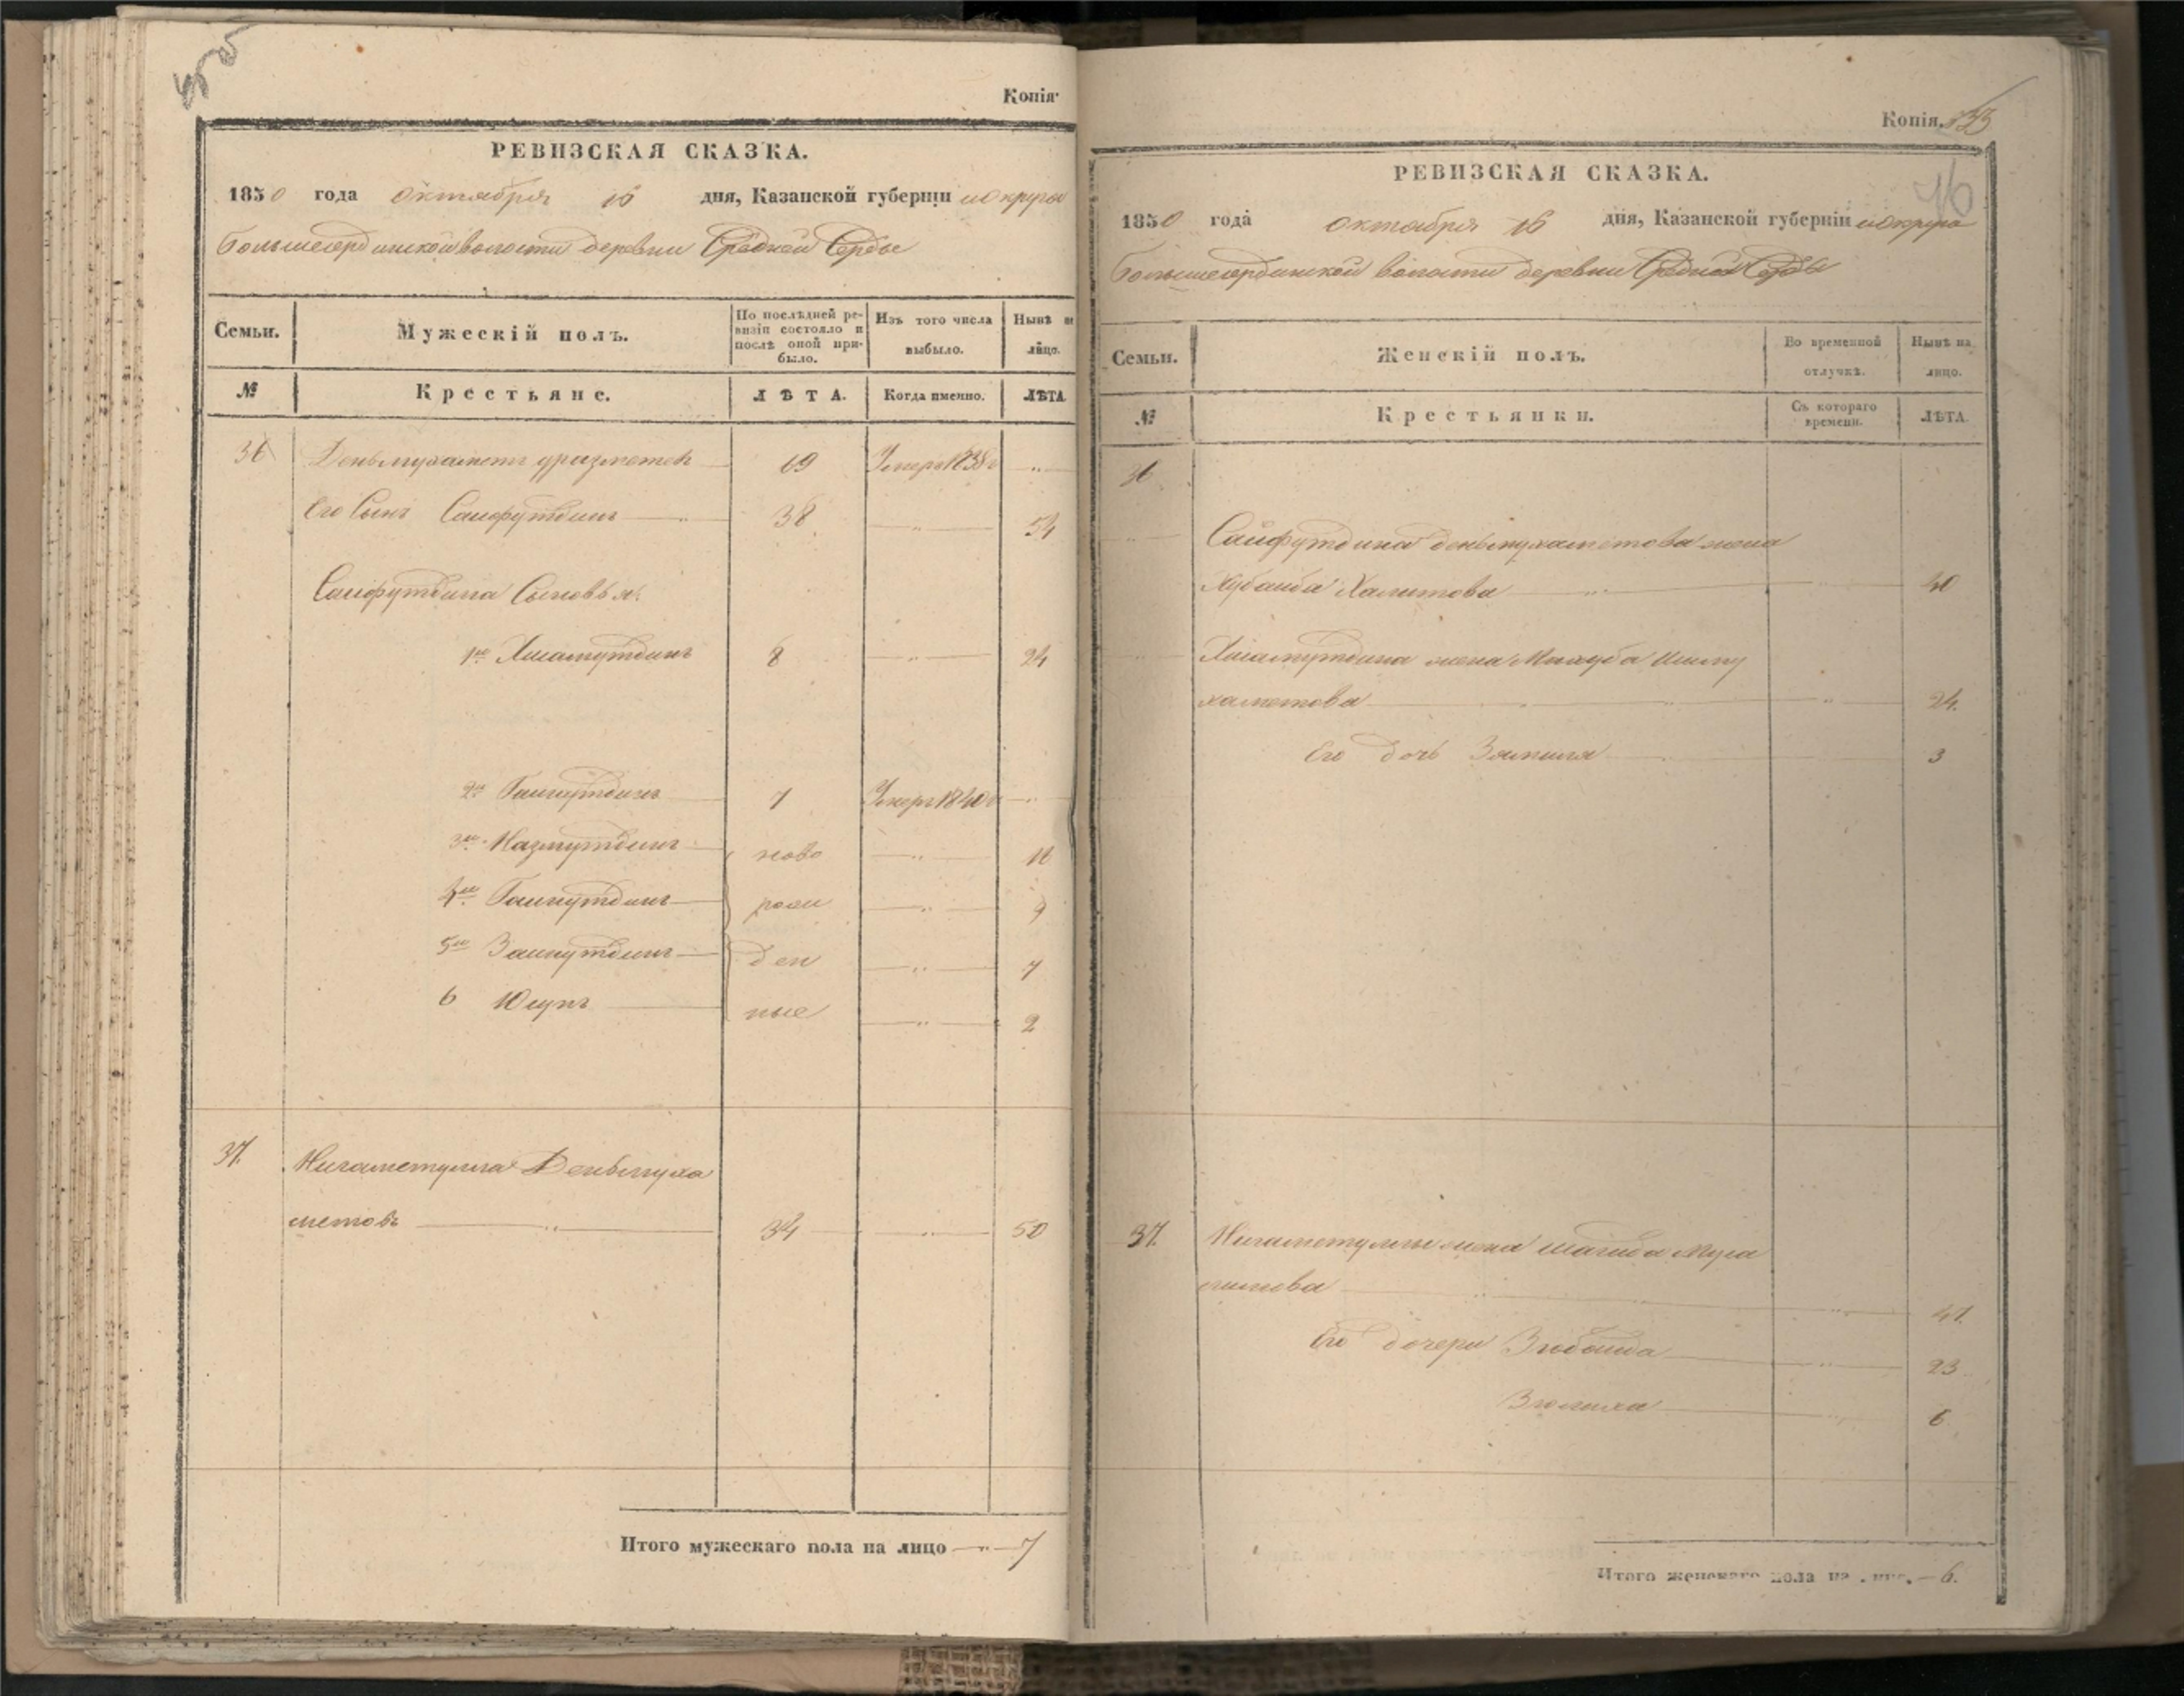 Копія
РЕВИЗСКАЯ СКАЗКА.
1850 года октября 16 дня, Казанской губерніи и округа
Большесердинской волости деревни Средней Серды
Семьи. Мужескій полъ. По послѣдней ревизіи состояло и послѣ оной прибыло. Изъ того числа выбыло. Нынѣ на лицо.
№ Крестьяне. ЛѢТА. Когда именно. ЛѢТА
36 Деньмухаметъ 69 Умеръ 1838 г
Его Сынъ Сайфутдинъ 38 54
Сайфутдина Сыновья:
1й Хисамутдинъ 8 24
2й 7 Умеръ 1840 г
3й Назмутдинъ ново 11
4й рож 9
5й Зайнутдинъ ден 7
6 Юсупъ ные 2
37. Нигаметулла Деньмуха
метовъ 34 50
Итого мужескаго пола на лицо 7
Копія.
РЕВИЗСКАЯ СКАЗКА.
1850 года октября 16 дня, Казанской губерніи и округа
Большесердинской волости деревни Средней Серды
Семьи. Женскій полъ. Во временной отлучкѣ. Нынѣ на лицо.
№ Крестьянки. Съ котораго времени. ЛѢТА.
36
Сайфутдина деньмухаметова жена
Хубайба Халитова 40
Хисамутдина жена Ишму
хаметова 24.
Его дочь 3
37. Нигаметуллы жена
41.
Его дочери Зюбайда 23
Зюлиха 6
Итого женскаго пола на лицо. 6.